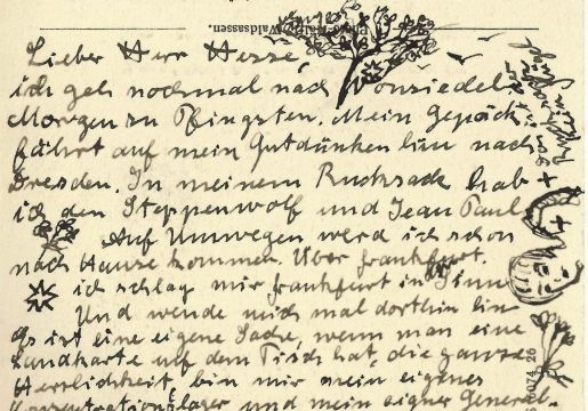 Photo Waldsassen.
Lieber Herr Hesse,
ich geh nochmal nach Wonsiedel
Morgen zu Pfingsten. Mein Gepäck
fährt auf mein Gutdünken hin nach
Dresden. In meinem Rucksack hab
ich den Steppenwolf und Jean Paul
Auf Umwegen werd ich schon
nach Hause kommen. Über Frankfurt.
ich schlag mir Frankfurt in Sinn
Und wende mich mal dorthin hin
Es ist eine eigene Sache, wenn man eine
Landkarte auf dem Tisch hat, die ganze
Herrlichkeit, bin mir mein eigenes
Konzentrationslager und mein eigner General-
1074 26